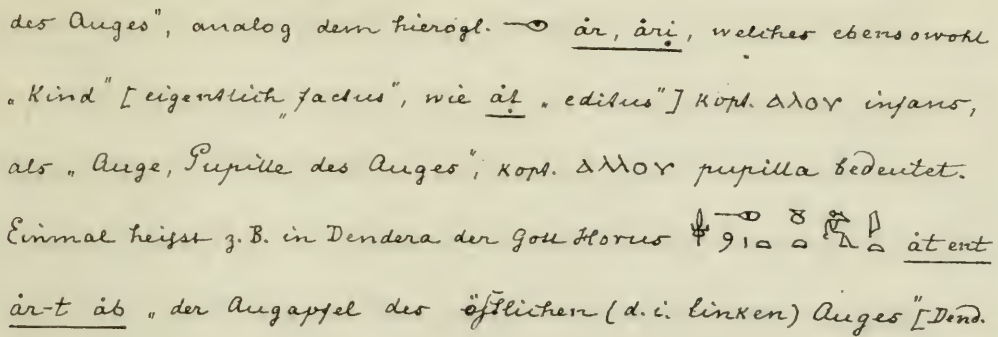 des Auges", analog dem hierogl. 𓁹 ȧr, ȧri, welches ebensowohl
„Kind" [eigentlich „factus", wie ȧt „editus"] kopt. ⲁⲗⲟⲩ infans,
als „Auge, Pupille des Auges", kopt. ⲁⲗⲗⲟⲩ pupilla bedeutet.
Einmal heisst z. B. in Dendera der Gott Horus ȧt ent
ȧr-t ȧb „der Augapfel des östlichen (d. i. linken) Auges" [Dend.